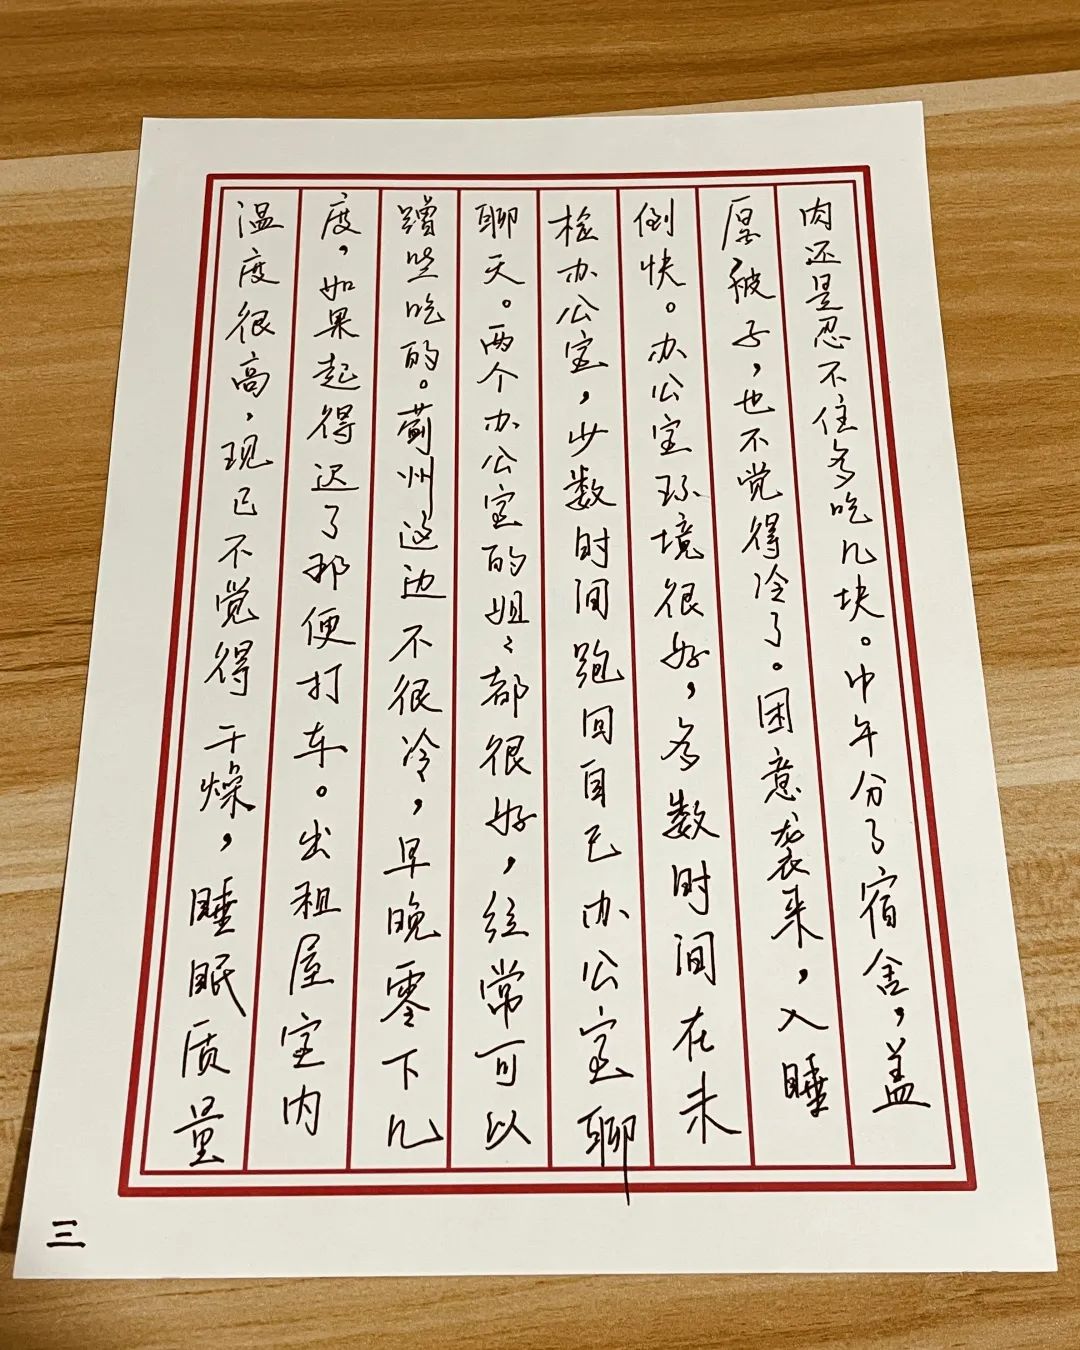 肉还是忍不住多吃几块。中午分了宿舍，盖
厚被子，也不觉得冷了。困意袭来，入睡
倒快。办公室环境很好，多数时间在未
检办公室，少数时间跑回自己办公室聊
聊天。两个办公室的姐〻都很好，往常可以
蹭些吃的。蓟州这边不很冷，早晚零下几
度，如果起得迟了那便打车。出租屋室内
温度很高，现已不觉得干燥，睡眠质量
三